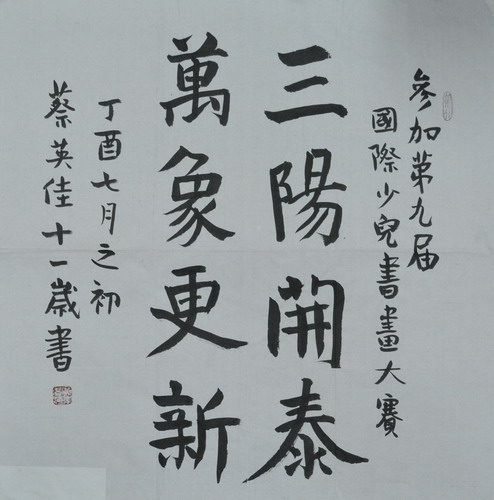 參加第九届
國際少兒書畫大賽
三陽開泰
萬象更新
丁酉七月之初
蔡英佳十一歲書